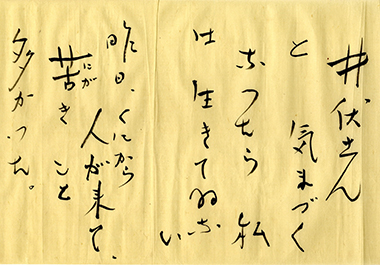 井伏さん
と 気まづく
なつたら 私
は 生きてゐない
昨日、くにから
人が来て、
苦き こと
にが
多かつた。